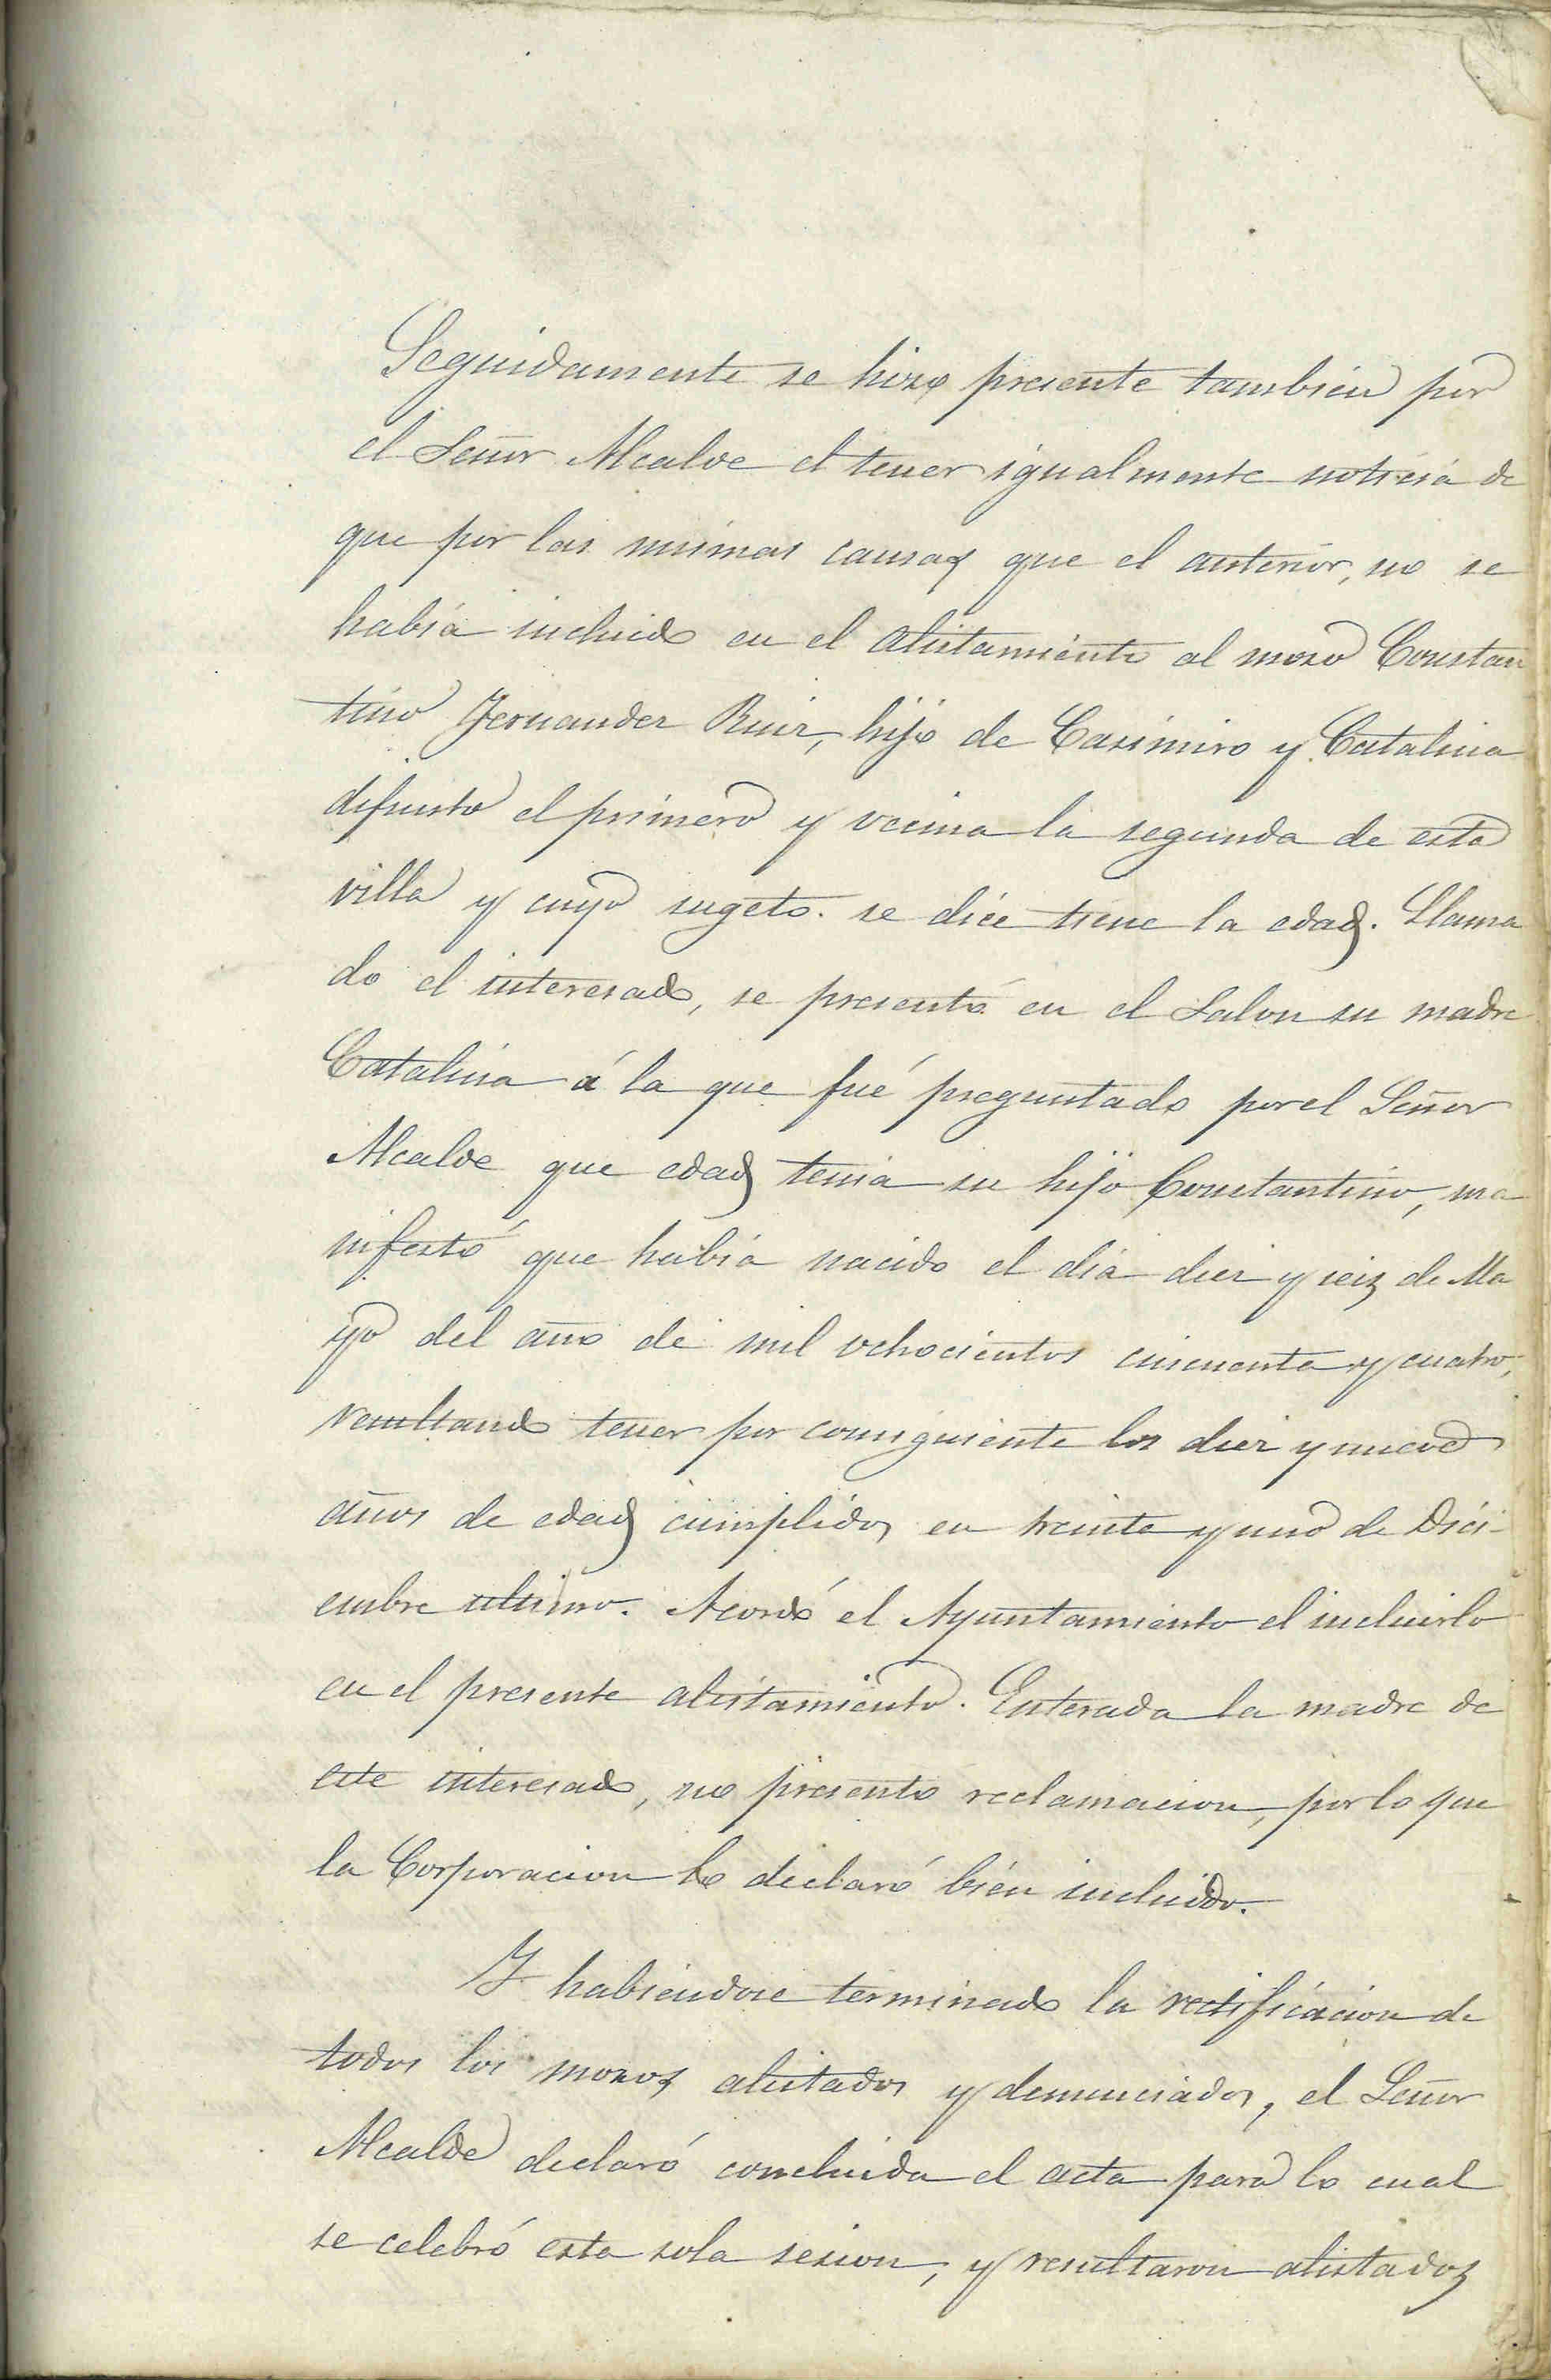 Seguidamente se hizo presente tambien por
el Señor Alcalde el tener igualmente noticia de
que por las mismas causas que el anterior, no se
había incluido en el alistamiento al mozo Constan
tino Fernandez Ruiz, hijo de Casimiro y Catalina
difunto el primero y vecina la segunda de esta
villa y cuyo sugeto se dice tiene la edad. Llama
do el interesado, se presentó en el Salon su madre
Catalina á la que fué preguntado por el Señor
Alcalde que edad tenia su hijo Constantino, ma
nifestó que había nacido el día diez y seis de Ma
yo del año de mil ochocientos cincuenta y cuatro,
resultando tener por consiguiente los diez y nueve
años de edad cumplidos en treinta y uno de Dici-
embre ultimo. Acordó el Ayuntamiento el incluirlo
en el presente alistamiento. Enterada la madre de
este interesado, no presentó reclamacion, por lo que
la Corporacion lo declaró bién incluido.
Y habiendose terminado la rectificacion de
todos los mozos alistados y denunciados, el Señor
Alcalde declaró concluida el acta para lo cual
se celebró esta sola sesion, y resultaron alistados